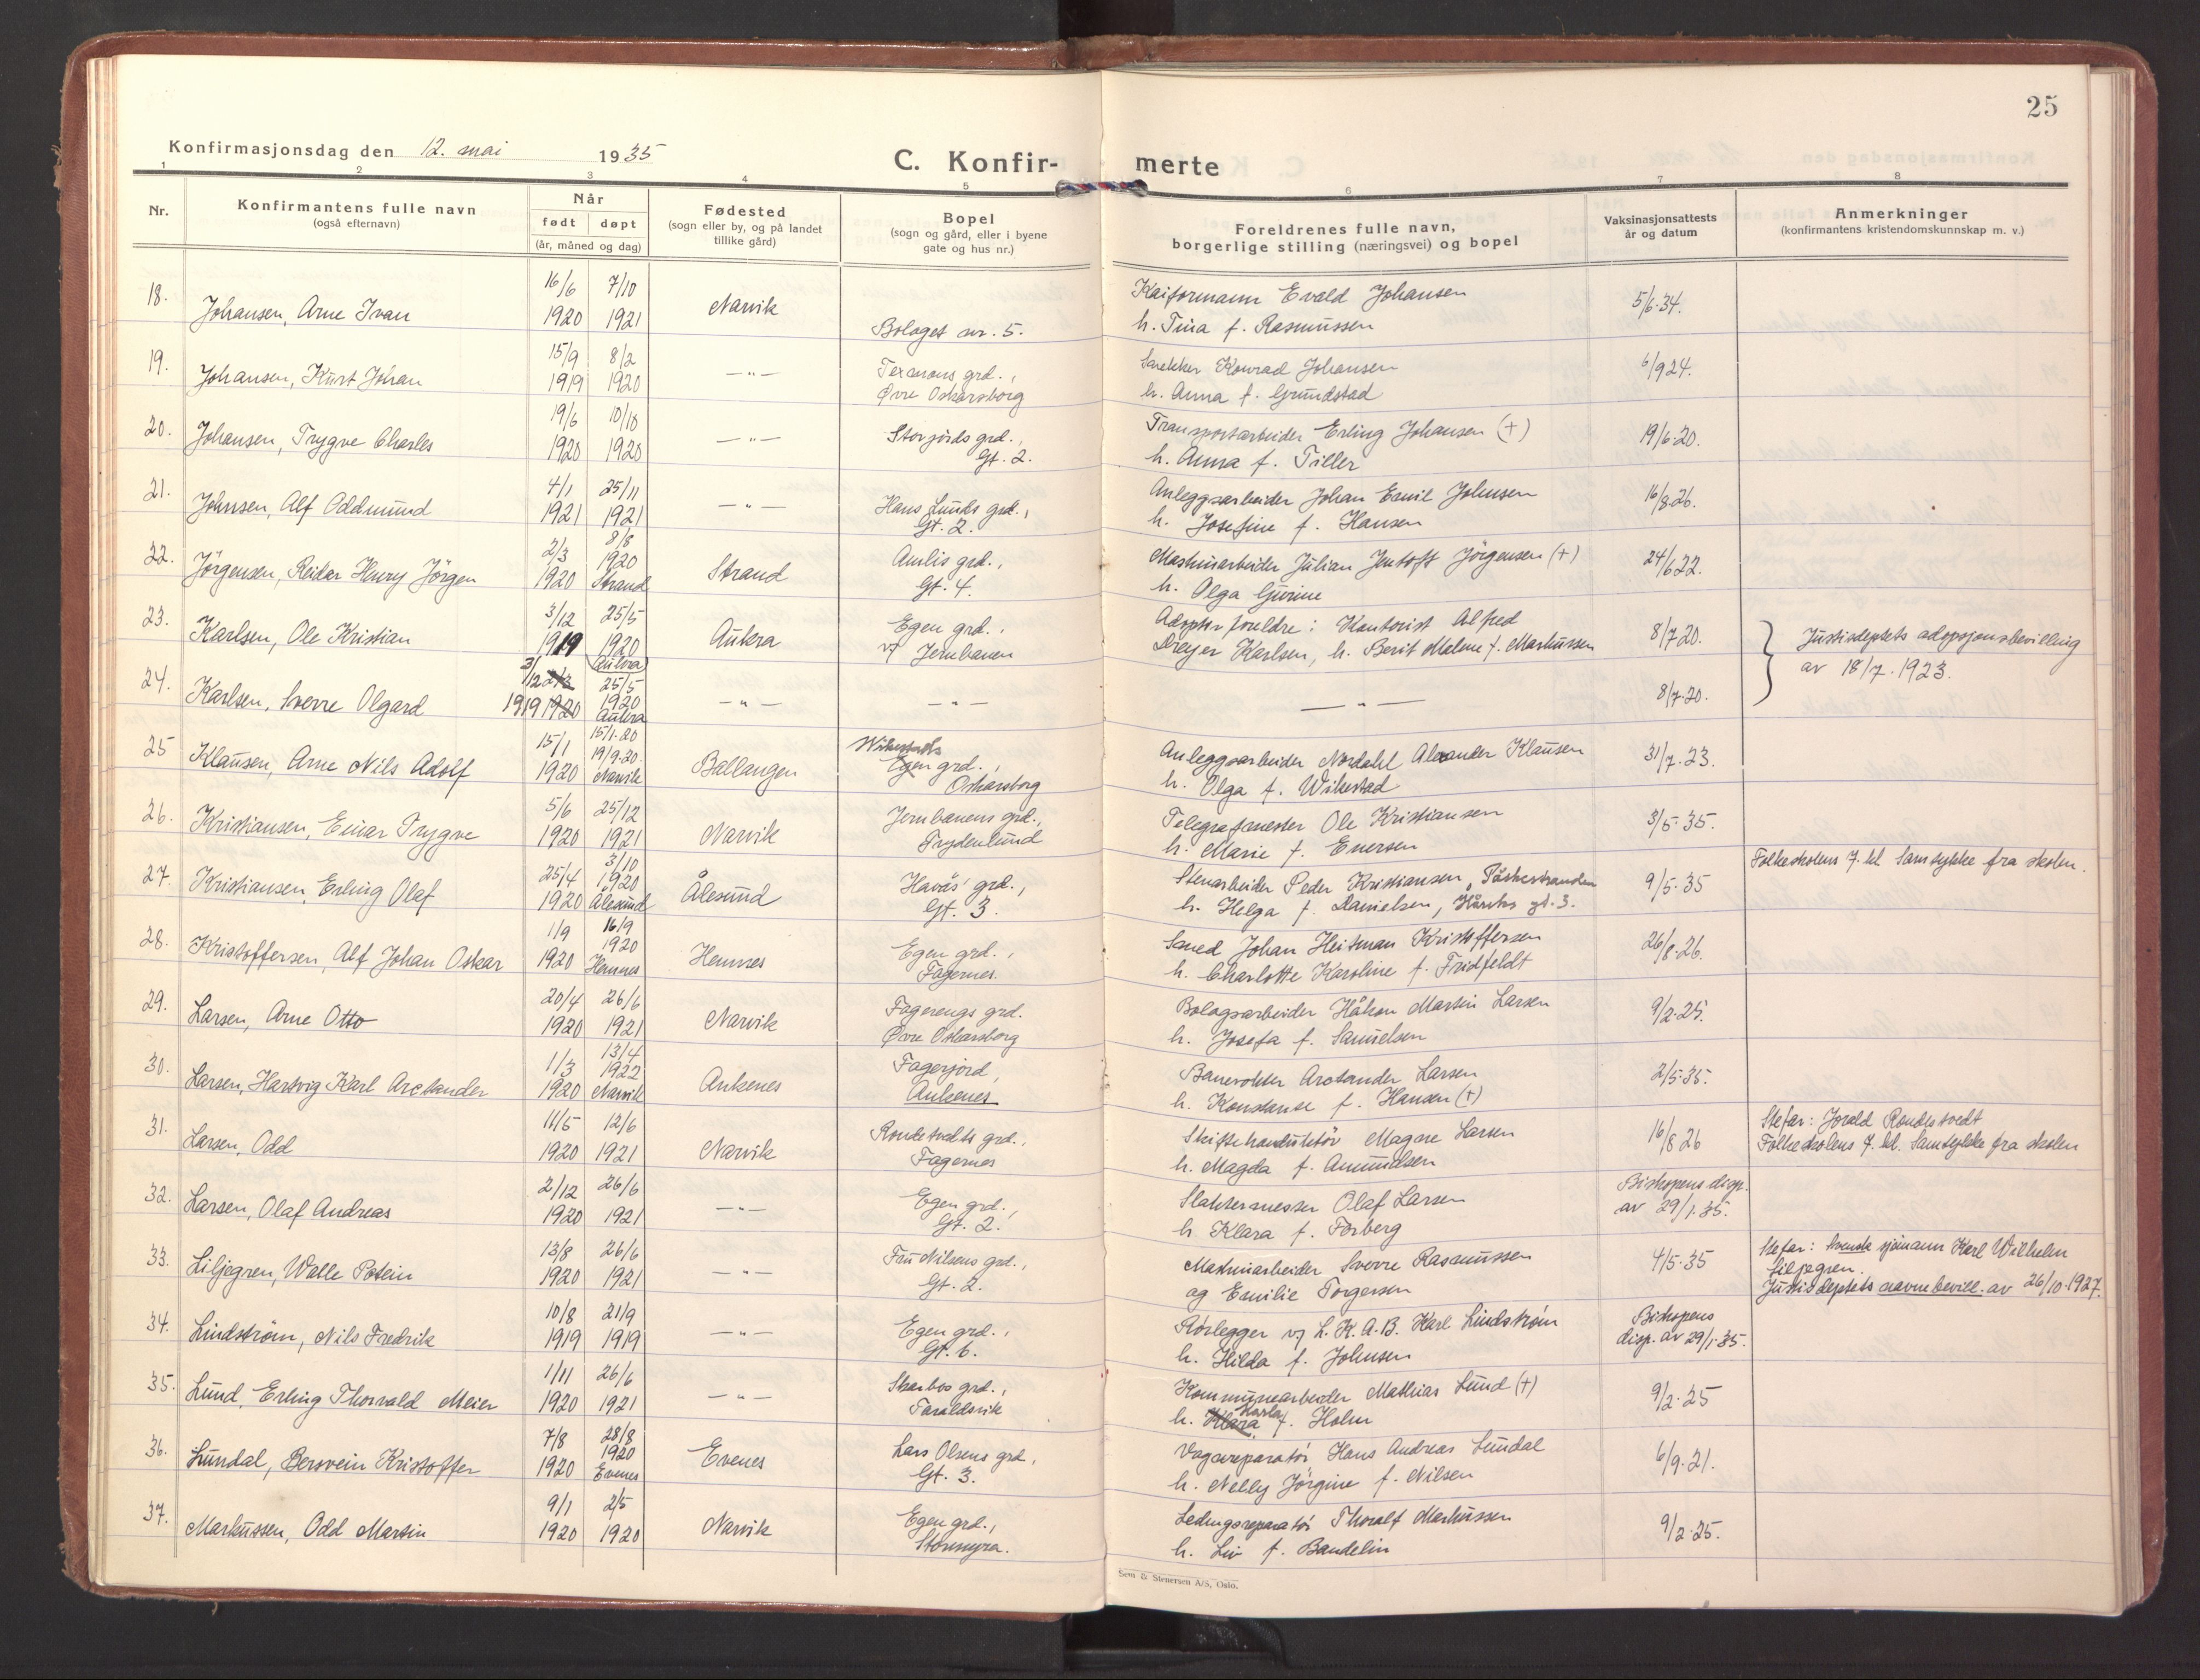 25
Konfirmasjonsdag den 12. mai 1935
C. Konfir- merte
1 2 3 4 5 6 7 8
Nr.
Konfirmantens fulle navn
(også efternavn)
Når
født døpt
(år, måned og dag)
Fødested
(sogn eller by, og på landet
tillike gård)
Bopel
(sogn og gård, eller i byene
gate og hus nr.)
Foreldrenes fulle navn,
borgerlige stilling (næringsvei) og bopel
Vaksinasjonsattests
år og datum
Anmerkninger
(konfirmantens kristendomskunnskap m. v.)
18. Johansen, Arne Ivan 16/6 1920 7/10 1921 Narvik Bolaget nr. 5. Kaiformann Evald Johansen 5/6-34.
h. Tina f. Rasmussen
19. Johansen, Kurt Johan 15/9 1919 8/2 1920 —"— Texmons grd., Snekker Konrad Johansen 6/9 24.
Øvre Oskarsborg h. Anna f. Grundstad
20. Johansen, Trygve Charles 19/6 1920 10/10 1920 —"— Storjords grd., Transportarbeider Erling Johansen (+) 19/6-20.
Gt. 2. h. Anna f. Tiller
21. Johnsen, Alf Oddmund 4/1 1921 25/11 1921 —"— Hans Lunds grd., Anleggsarbeider Johan Emil Johnsen 16/8-26.
Gt. 2. h. Josefine f. Hansen
22. Jörgensen, Reidar Henry Jörgen 2/3 1920 8/8 1920 Strand Strand Amlis grd., Maskinarbeider Julian Jentoft Jörgensen (+) 24/6 22.
Gt. 4. h. Olga Gurine
23. Karlsen, Ole Kristian 3/12 1919 25/5 1920 Aukra Aukra Egen grd., Adoptivforeldre: Kontorist Alfred 8/7 20. Justisdeptets adopsjonsbevilling
v/ Jernbanen Dreyer Karlsen, h. Berit Malene f. Markussen av 18/7-1923.
24. Karlsen, Sverre Olgard 3/12 1919 1920 25/5 1920 Aukra —"— —"— —"— 8/7-20.
25 Klausen, Arne Nils Adolf 15/1 1920 15/1-20 19/9-20. Narvik Ballangen Wikestads Egen grd., Anleggsarbeider Nordahl Alexander Klausen 31/7-23.
Oskarsborg h. Olga f. Wikestad
26. Kristiansen, Einar Trygve 5/6 1920 25/12 1921 Narvik Jernbanens grd., Telegrafmester Ole Kristiansen 3/5-35.
Frydenlund h. Marie f. Enersen
27. Kristiansen, Erling Olaf 25/4 1920 3/10 1920 Ålesund Ålesund Havås' grd., Stenarbeider Peder Kristiansen, 9/5-35 Folkeskolens 7. kl. Samtykke fra skolen.
Gt. 3. h. Helga f. Danielsen, gt. 3.
28. Kristoffersen, Alf Johan Oskar 1/9 1920 16/9 1920 Hemnes Hemnes Egen grd., Smed Johan Heitman Kristoffersen 26/8-26.
Fagernes. h. Charlotte Karoline f. Fridfeldt
29. Larsen, Arne Otto 20/4 1920 26/6 1921 Narvik Fagerengs grd. Bolagsarbeider Håkon Martin Larsen 9/2-25.
Øvre Oskarsborg h. Josefa f. Samuelsen
30. Larsen, Hartvig Karl Arctander 1/3 1920 13/4 1922 Narvik Ankenes Fagerjord, Banevokter Arctander Larsen 2/5-35.
Ankenes h. Konstanse f. Hansen (+)
31. Larsen, Odd 11/5 1920 12/6 1921 Narvik Rondetvedts grd., Skiftekonduktör Magne Larsen 16/8 26 Stefar: Jorald Rondetvedt
Fagernes h. Magda f. Amundsen Folkeskolens 7. kl. Samtykke fra skolen
32. Larsen, Olaf Andreas 2/12 1920 26/6 1921 —"— Egen grd., Slaktermester Olaf Larsen Bishopens disp.
Gt. 2. h Klara f. Forberg av 29/1-35.
33. Liljegren, Walle Potein 13/8 1920 26/6 1921 —"— Nilsens grd., Maskinarbeider Sverre Rasmussen 4/5-35 Stefar: Svensk sjømann Karl Wilhelm Liljegren.
Gt. 2. og Emilie Torgersen Justisdeptets navnebevill. av 26/10-1927.
34. Lindström, Nils Fredrik 10/8 1919 21/9 1919 —"— Egen grd., Rørlegger v/ L. K. A. B. Karl Lindström Bishopens
Gt. 6. h. Hilda f. Johnsen disp. av 29/1-35.
35. Lund, Erling Thorvald Meier 1/11 1920 26/6 1921 —"— Skarbos grd., Kommunearbeider Mathias Lund (+) 9/2-25
Taraldsvik h. Klara Karla f. Holm
36. Lundal, Bersvein Kristoffer 7/8 1920 28/8 1920 Evenes Evenes Lars Olsens grd., Vognreparatör Hans Andreas Lundal 6/9-21.
Gt. 3. h. Nelly Jörgine f. Nilsen
37. Markussen, Odd Martin 9/1 1920 2/5 1920 Narvik Egen grd., Ledningsreparatör Thoralf Markussen 9/2-25.
Stormyra. h. Liv f. Bandelin
Sem & Stenersen A/S, Oslo.